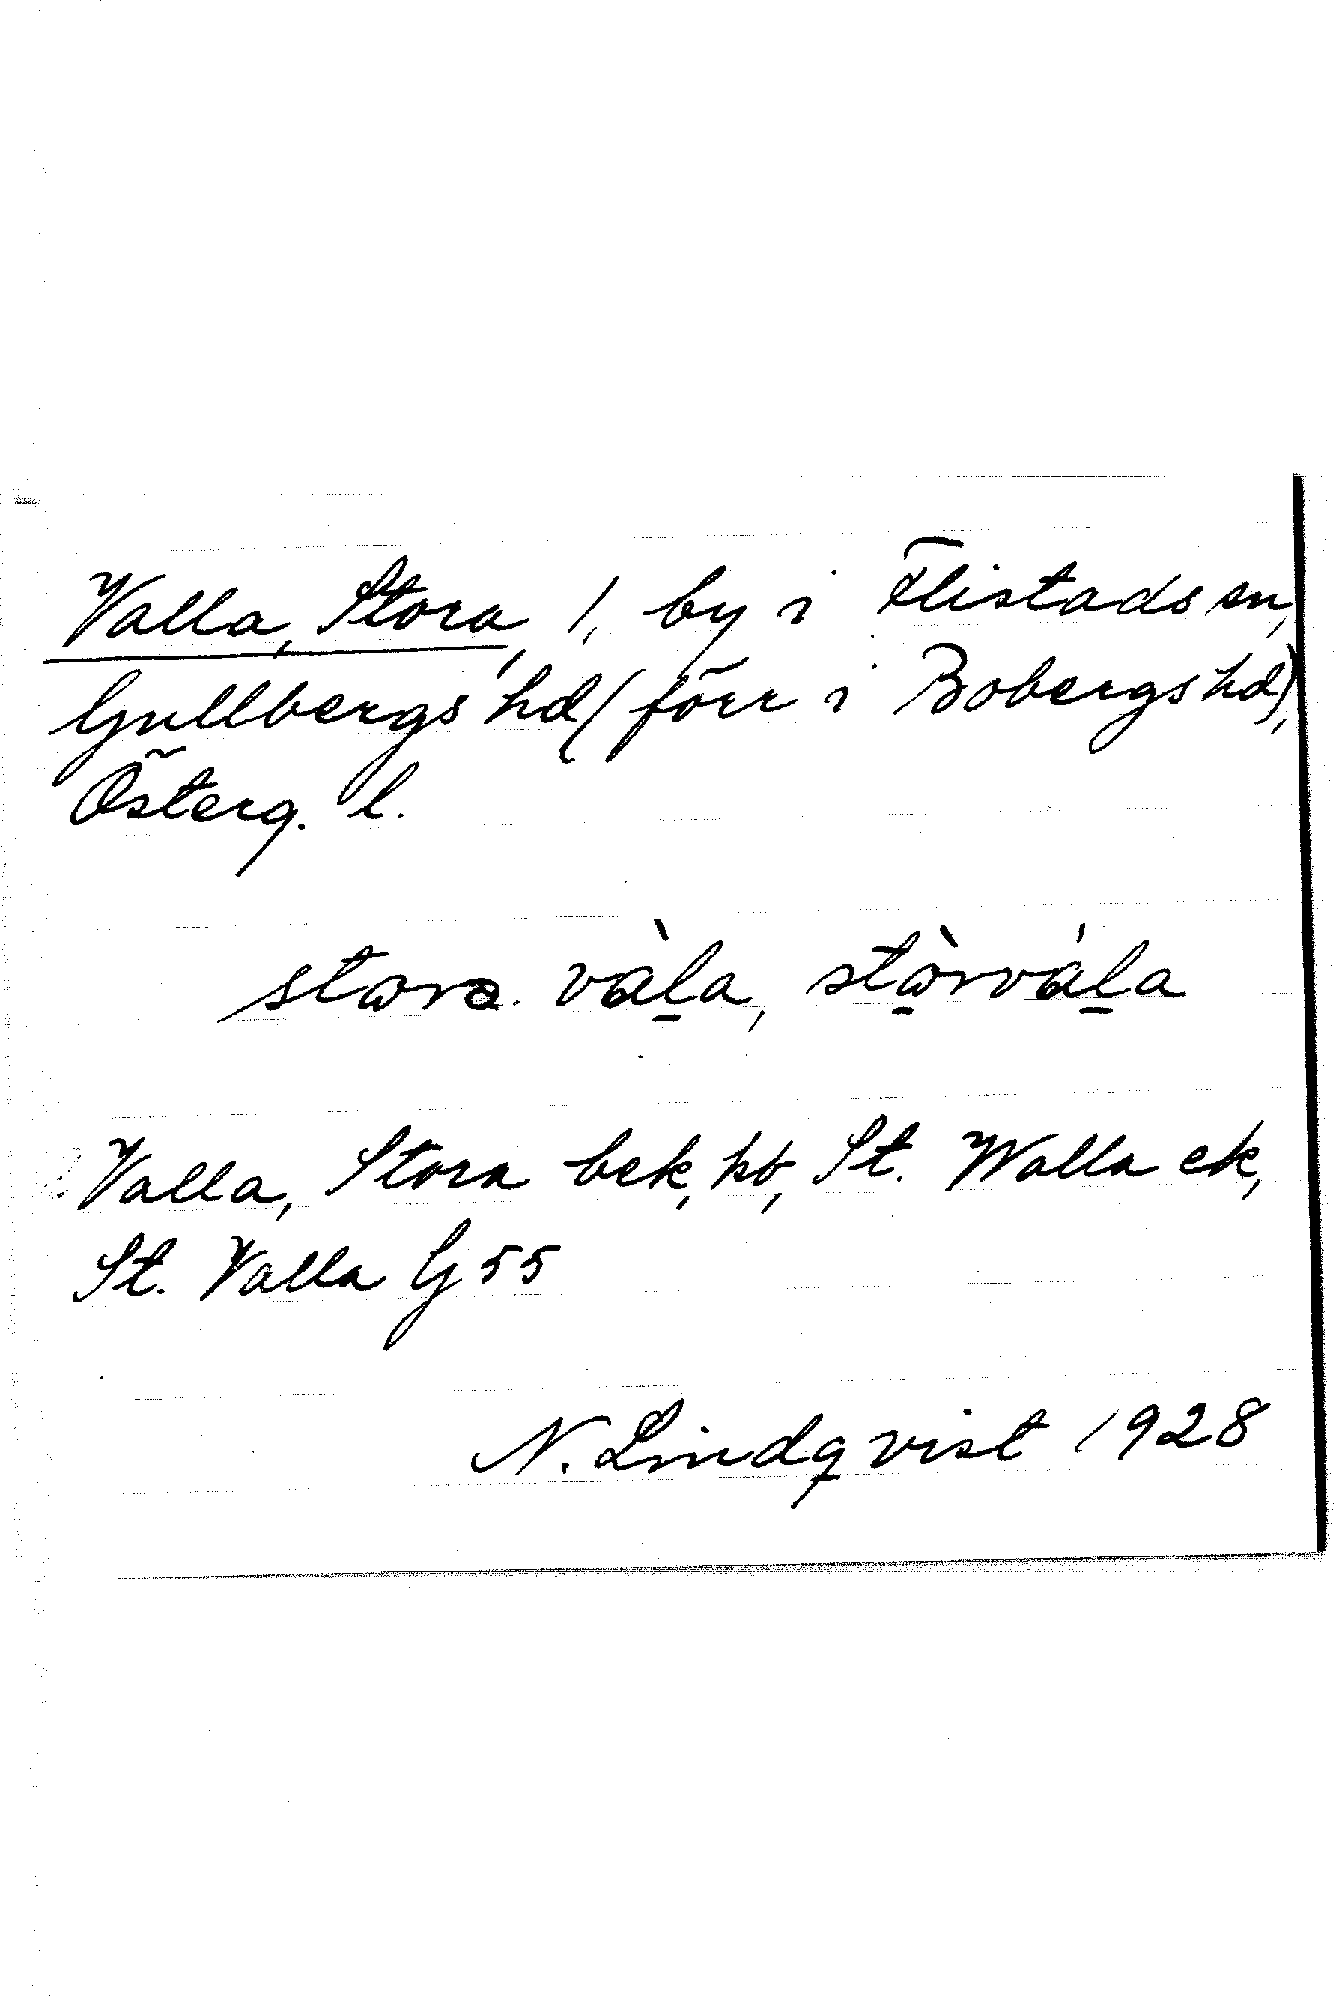 Valla, Stora, 1, by i Flistads sn,
Gullbergs hd (förr i Bobergs hd),
Österg. l.
storə vàl̠a, stò̠rvál̠a
Valla, Stora bek, kb, St. Walla ek,
St. Valla G 55
N. Lindqvist 1928